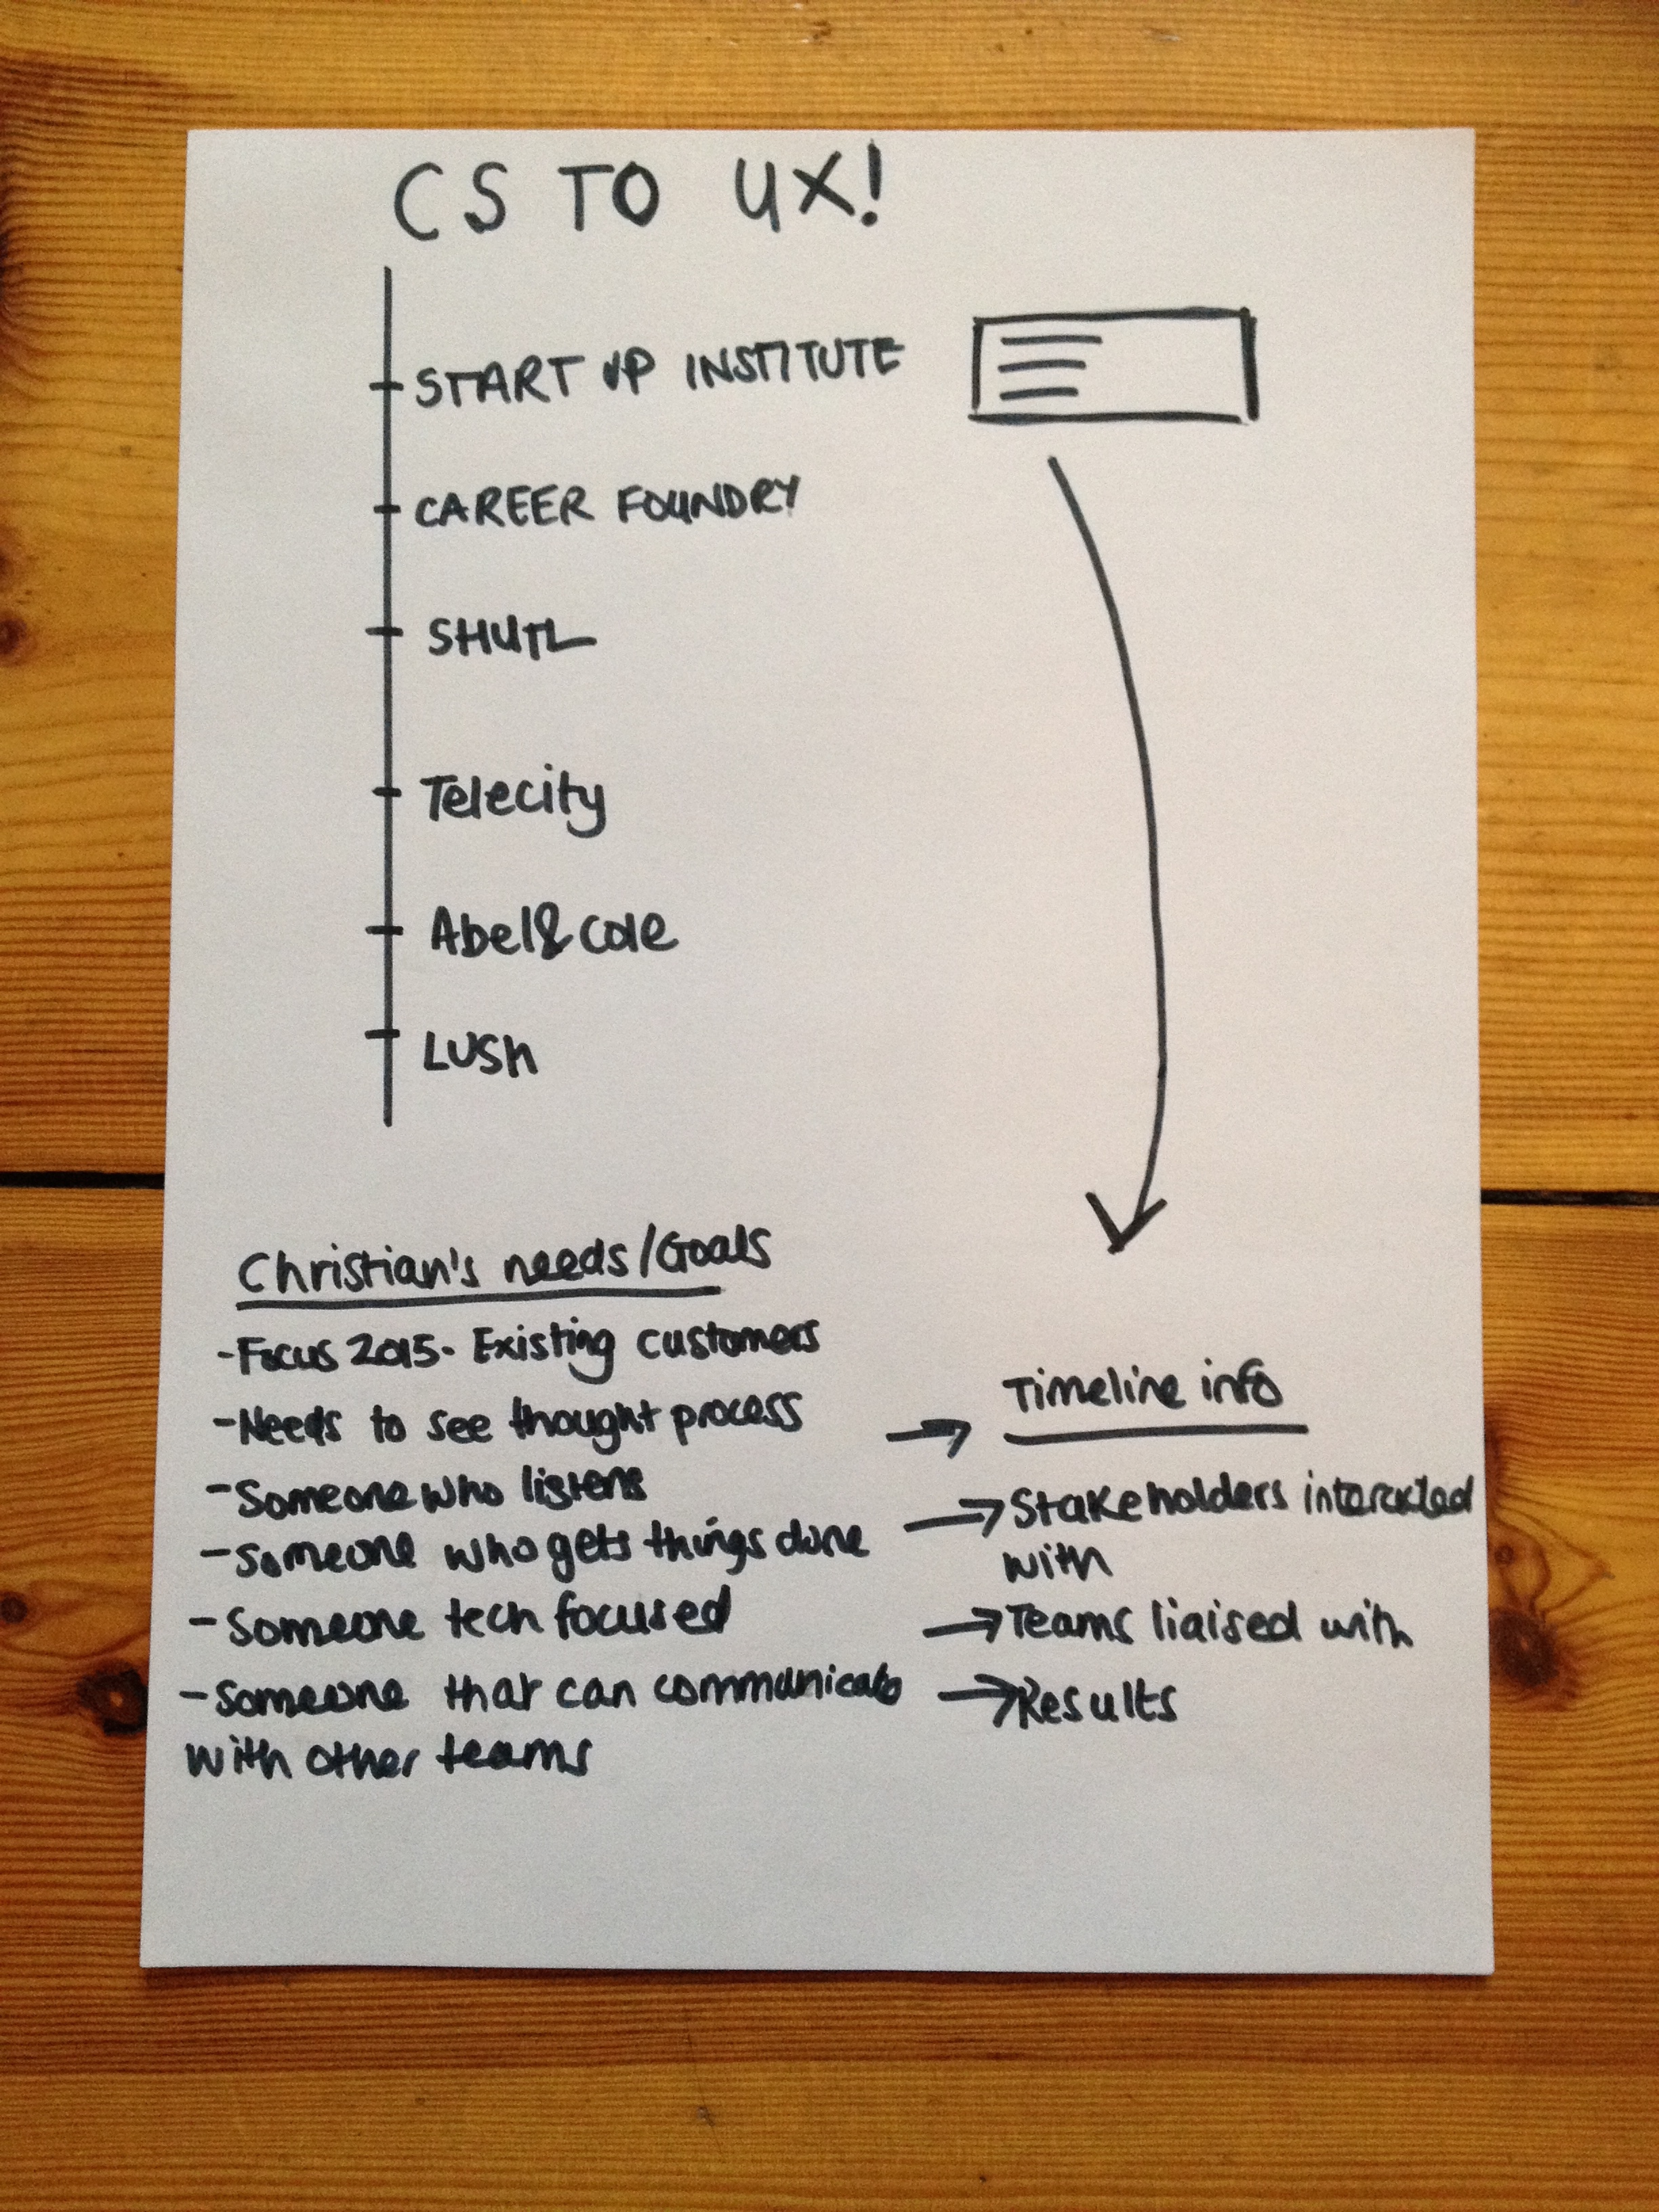 CS TO UX!
START UP INSTITUTE
CAREER FOUNDRY
SHUTL
Telecity
Abel&Cole
LUSh
Christian's needs/Goals
-Focus 2015- Existing customers
-Needs to see thought process
-Someone who listens
-Someone who gets things done
-Someone tech focused
-Someone that can communicate
with other teams
Timeline info
→Stakeholders interacted
with
→Teams liaised with
→Results